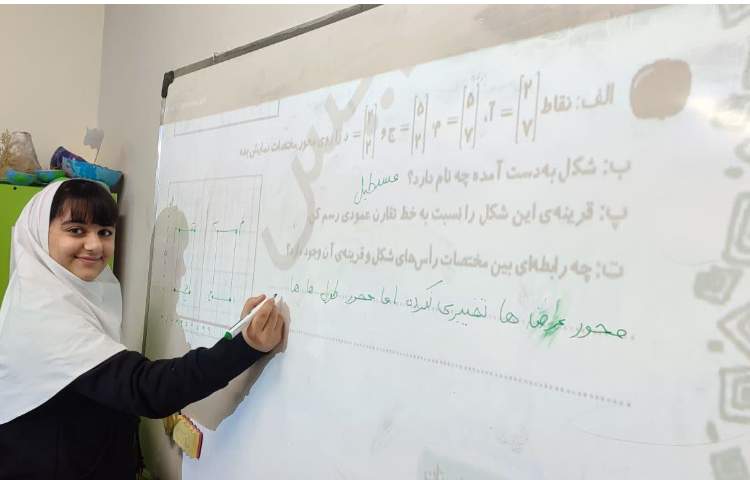 الف: نقاط [۲ ۷] = آ، [۵ ۷] = م، [۵ ۲] = ج و [۲ ۲] = د را روی محور مختصات نمایش بده
ب: شکل به‌دست آمده چه نام دارد؟ مستطیل
پ: قرینه‌ی این شکل را نسبت به خط تقارن عمودی رسم کن
ت: چه رابطه‌ای بین مختصات رأس‌های شکل و قرینه‌ی آن وجود دارد؟
محور عرض ها تغییری نکرده اما محور طول ها